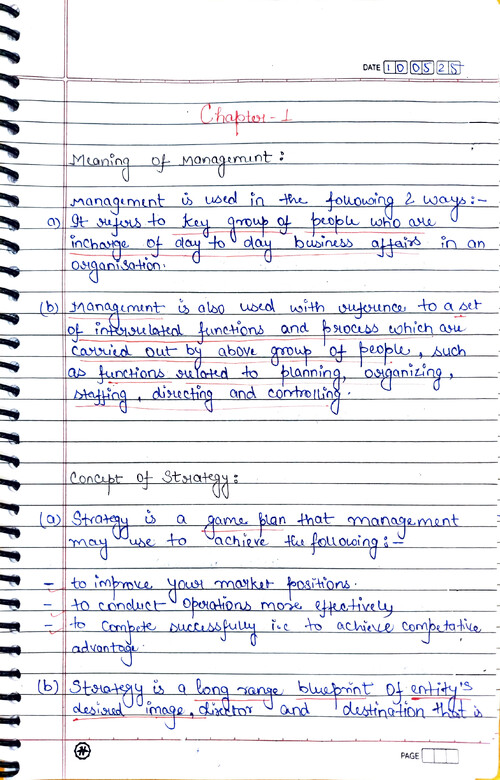 DATE 100525
Chapter-1
Meaning of Management:
Management is used in the following 2 ways:-
a) It refers to key group of people who are
incharge of day to day business affairs in an
organisation.
(b) Management is also used with reference to a set
of interrelated functions and process which are
carried out by above group of people, such
as functions related to planning, organizing,
staffing, directing and controlling.
Concept of Strategy:
(a) Strategy is a game plan that management
may use to achieve the following:-
- to improve your market positions.
- to conduct operations more effectively
- to compete successfully i.e to achieve competative
advantage.
(b) Strategy is a long range blueprint of entity's
desired image, and destination that is
PAGE